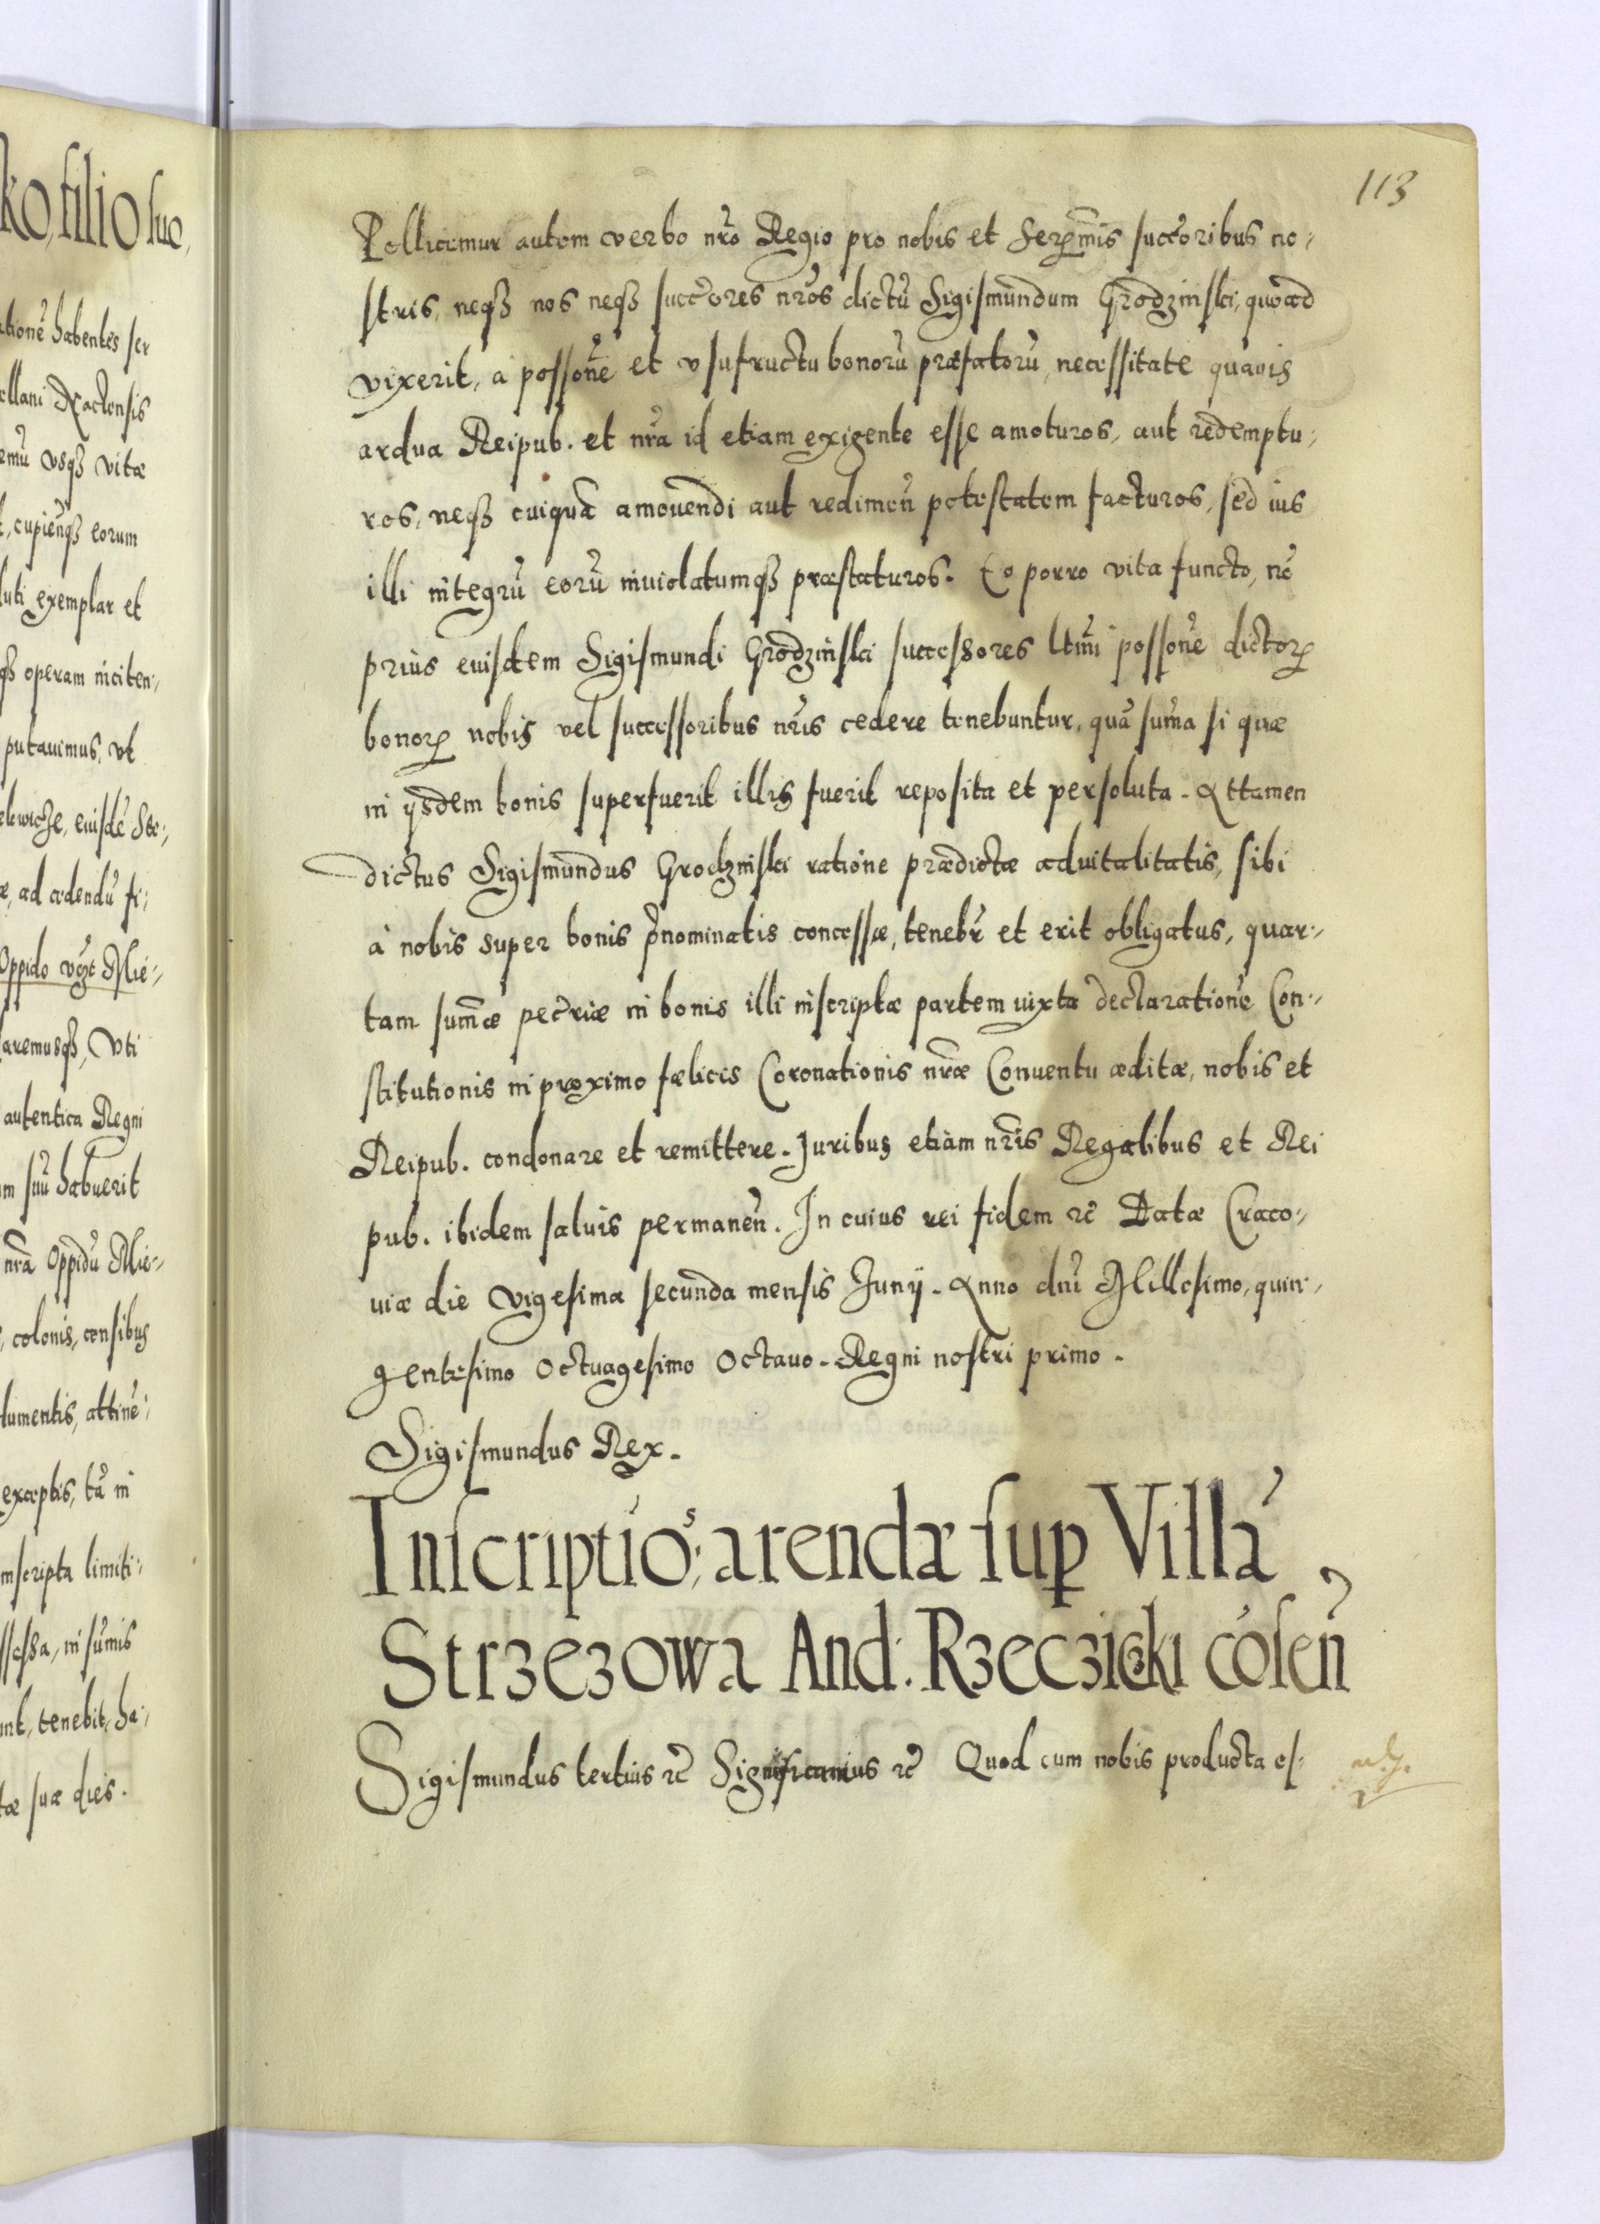 ko, filio suo,
ationē habentes ser
ellani Ractensis
emū vsqȝ vitæ
t, cupiēnqȝ eorum
luti exemplar et
qȝ operam niciten-
putauimus, vt
ad ædendū fi-
Oppido
aremusqȝ, Vti
autentica Regni
m suū habuerit
nr̃a Oppidū Mie-
colonis, censibus
lumentis, attinē
exceptis, tā in
mscripta limiti-
in sūmis
unt, tenebit, ha-
tæ suæ dies.
113
Pollicemur autem verbo nr̃o Regio pro nobis et Serp̃mis succ̃oribus no-
stris, neqȝ nos neqȝ succ̃ores nr̃os dictū Sigismundum Grodzinski, quoad
vixerit, a possoñe et vsufructu bonorū præfatorū, necessitate quauis
ardua Reipub. et nr̃a id etiam exigente esse amoturos, aut redemptu-
ros, neqȝ cuiquā amouendi aut redimeñ potestatem facturos, sed ius
illi integrū eorū inuiolatumqȝ præstaturos. Eo porro vita functo, nō
prius euisdem Sigismundi Grodzinski successores ltm̃i possoñe dictoꝝ
bonoꝝ nobis vel successoribus nr̃is cedere tenebuntur, quā sum̃a si quæ
in ijsdem bonis superfuerit illis fuerit reposita et persoluta. Attamen
dictus Sigismundus Grodzinski ratione prædictæ aduitalitatis, sibi
à nobis super bonis p̃nominatis concessæ, tenebr̃ et erit obligatus, quar-
tam sum̃æ pec̃riæ in bonis illi inscriptæ partem iuxta declarationē Con-
stitutionis in proximo fælicis Coronationis nr̃æ Conuentu æditæ, nobis et
Reipub. condonare et remittere. Juribus etiam nr̃is Regalibus et Rei
pub. ibidem saluis permaneñ. In cuius rei fidem ꝛc̃ Datæ Craco-
uiæ die vigesima secunda mensis Junij. Anno dni Millesimo, quin-
gentesimo Octuagesimo Octauo. Regni nostri primo.
Sigismundus Rex.
Inscriptiōs, arendæ suꝑ Villā
Strzezowa And: Rzeczicki cōseñ
Sigismundus tertius ꝛc̃ Significamus ꝛc̃ Quod cum nobis producta es-